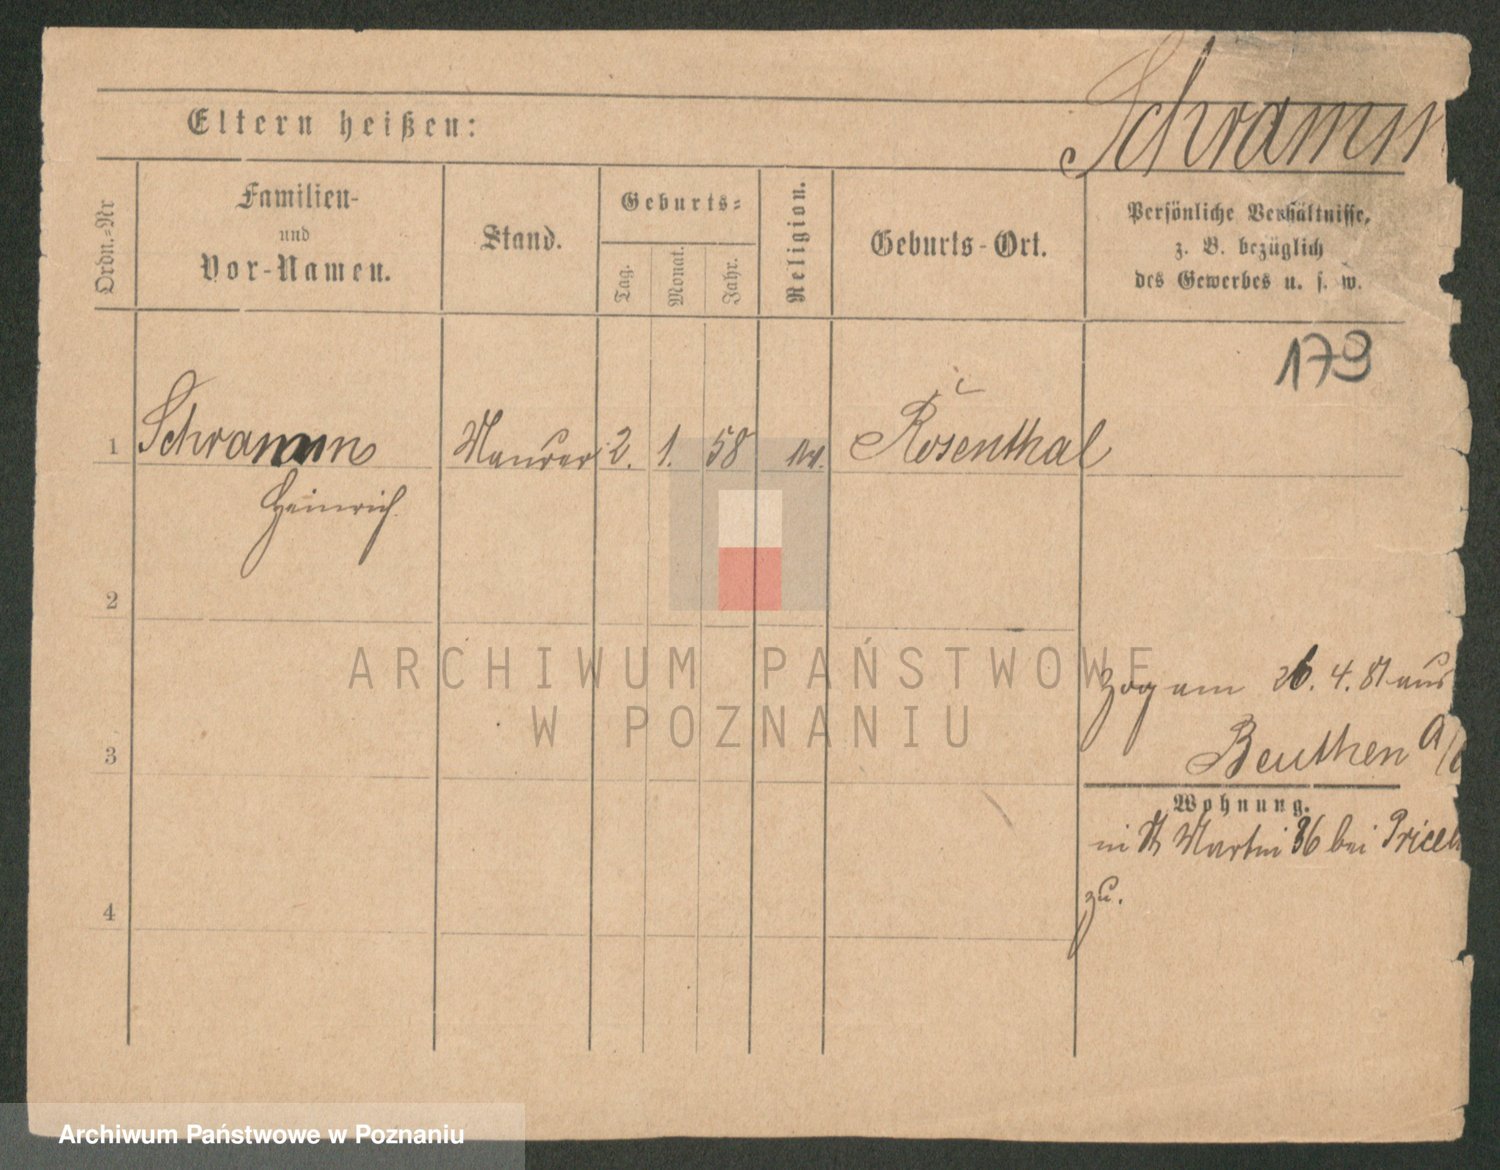 Schramm
Eltern heißen:
Ordn.-Nr
Familien-
und
Vor-Namen.
Stand.
Geburts-
Tag.
Monat.
Jahr.
Religion.
Geburts-Ort.
Persönliche Verhältnisse,
z. B. bezüglich
des Gewerbes u. s. w.
179
1 Schramm Maurer 2. 1. 58 Rosenthal
Heinrich
2
ARCHIWUM PAŃSTWOWE
W POZNANIU
zog am 26. 4. 81 aus
Beuthen
3
Wohnung.
in St Martin 36 bei
zu.
4
Archiwum Państwowe w Poznaniu